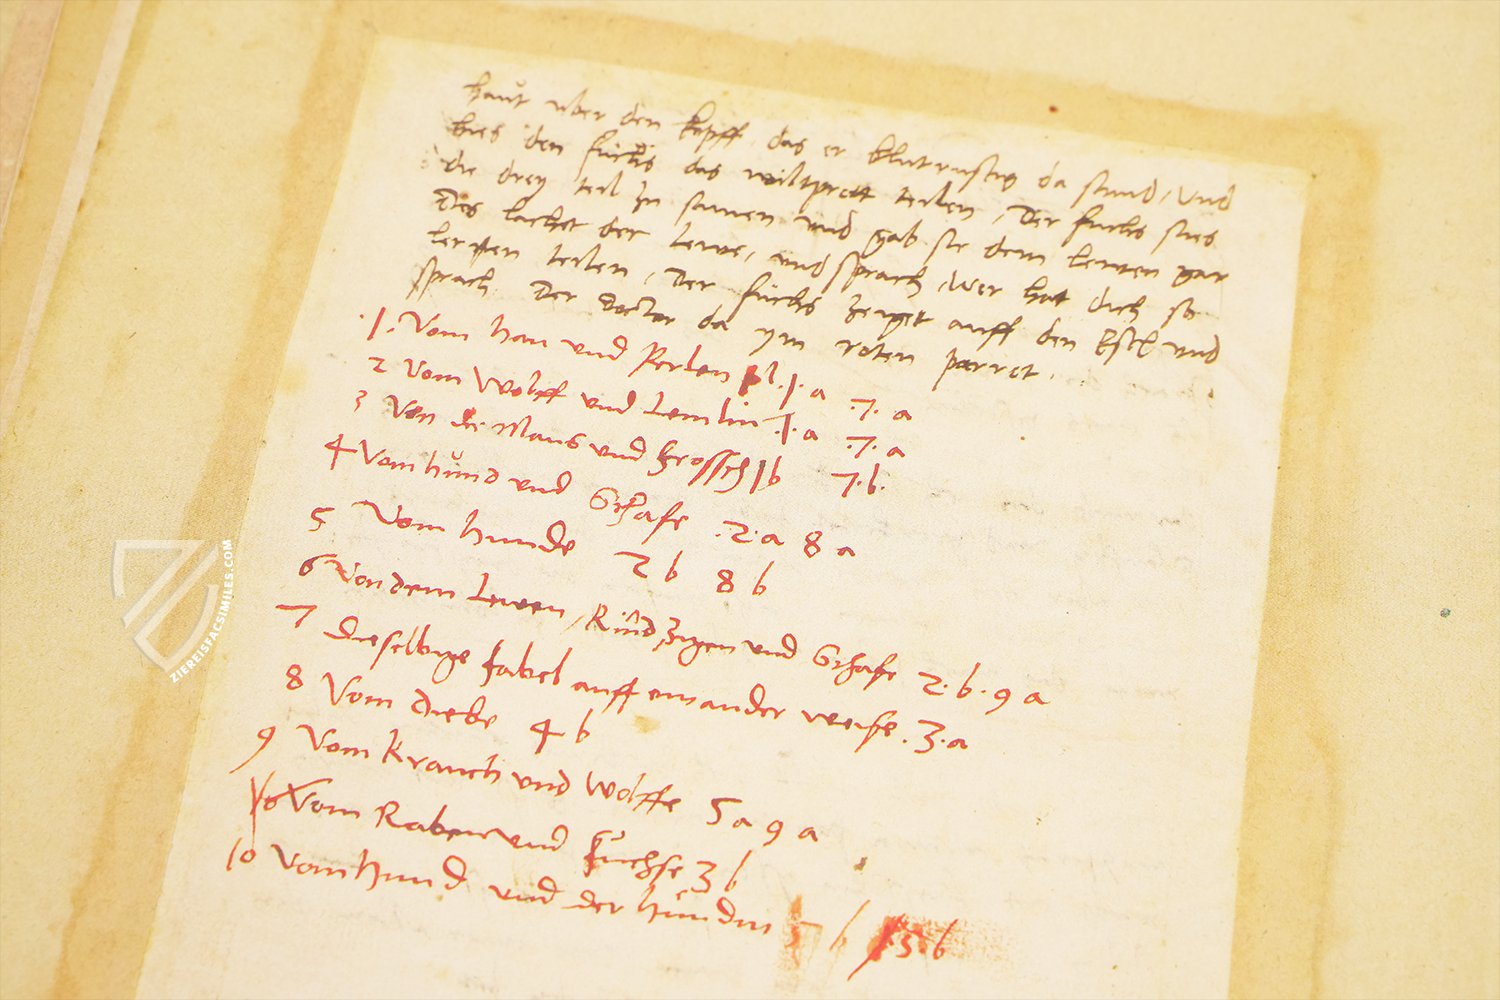 haut uber den kopff, das er blutrustig da stund, Und
hies den fuchs das wiltprett teilen, Der fuchs sties
die drey teil zu samen und gab sie dem lewen gar
Des lachet der lewe, und sprach, Wer hat dich so
lernen teilen, Der fuchs zeiget auff den Esel und
sprach Der Doctor da ym roten parret.
.1. Vom han und Perlen bl. 1. a .7. a
2 Vom Wolff und Lemlin .1. a .7. a
3 Von der Maus und Frossch 1 b 7. b.
4 Vom hund und Schafe .2. a 8 a
5 Vom hunde 2 b 8 b
6 Von dem Lewen, Rind, Zigen und Schafe 2. b. 9 a
7 Dieselbige fabel auff ein ander weise. 3. a
8 Vom Diebe 4 b
9 Vom Kranch und Wolffe 5 a 9 a
10 Vom Raben und Fuchse 3 b
10 Vom Hund und der hundin 5 b 5. b
ZIEREISFACSIMILES.COM